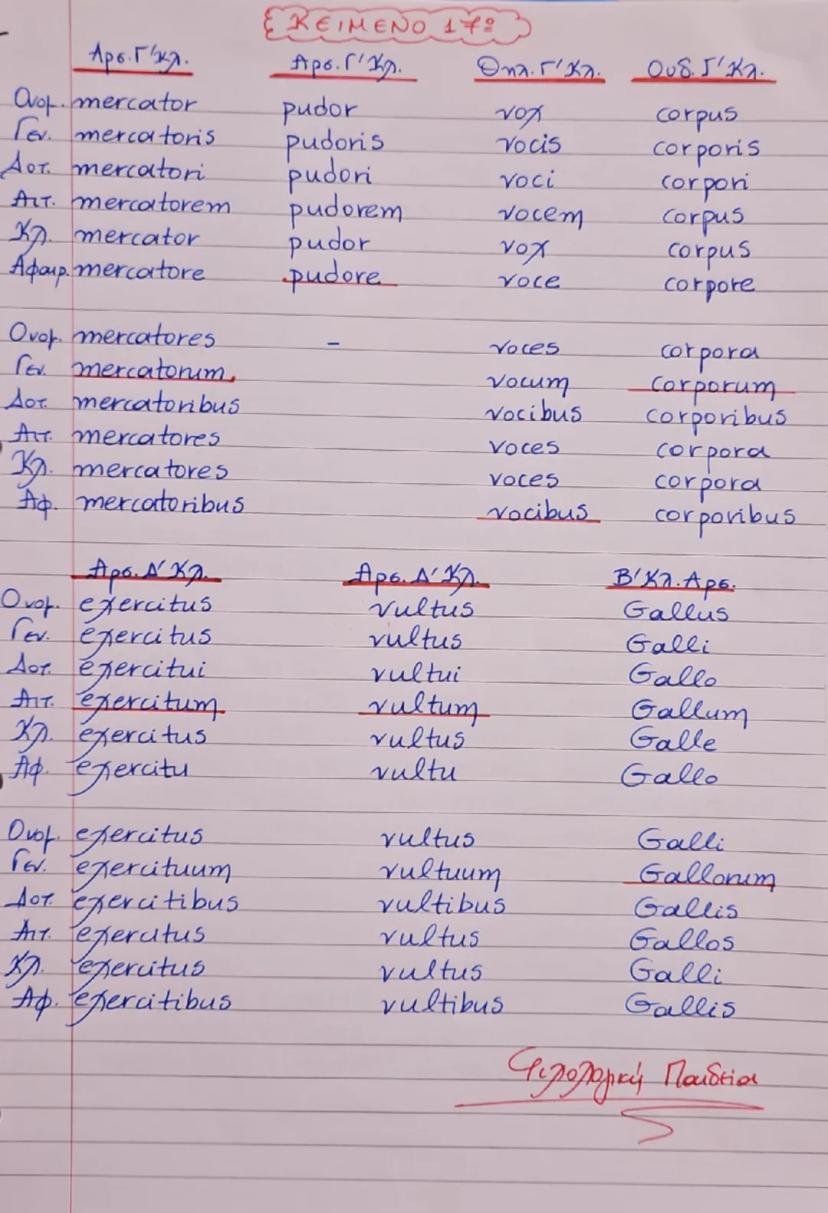 ΚΕΙΜΕΝΟ 17º
Αρσ. Γ' Κλ. Αρσ. Γ' Κλ. Θηλ. Γ' Κλ. Ουδ. Γ' Κλ.
Ονομ. mercator pudor vox corpus
Γεν. mercatoris pudoris vocis corporis
Δοτ. mercatori pudori voci corpori
Αιτ. mercatorem pudorem vocem corpus
Κλ. mercator pudor vox corpus
Αφαιρ. mercatore pudore voce corpore
Ονομ. mercatores - voces corpora
Γεν. mercatorum vocum corporum
Δοτ. mercatoribus vocibus corporibus
Αιτ. mercatores voces corpora
Κλ. mercatores voces corpora
Αφ. mercatoribus vocibus corporibus
Αρσ. Δ' Κλ. Αρσ. Δ' Κλ. Β' Κλ. Αρσ.
Ονομ. exercitus vultus Gallus
Γεν. exercitus vultus Galli
Δοτ. exercitui vultui Gallo
Αιτ. exercitum vultum Gallum
Κλ. exercitus vultus Galle
Αφ. exercitu vultu Gallo
Ονομ. exercitus vultus Galli
Γεν. exercituum vultuum Gallorum
Δοτ. exercitibus vultibus Gallis
Αιτ. exercitus vultus Gallos
Κλ. exercitus vultus Galli
Αφ. exercitibus vultibus Gallis
Φιλολογική Παιδεία